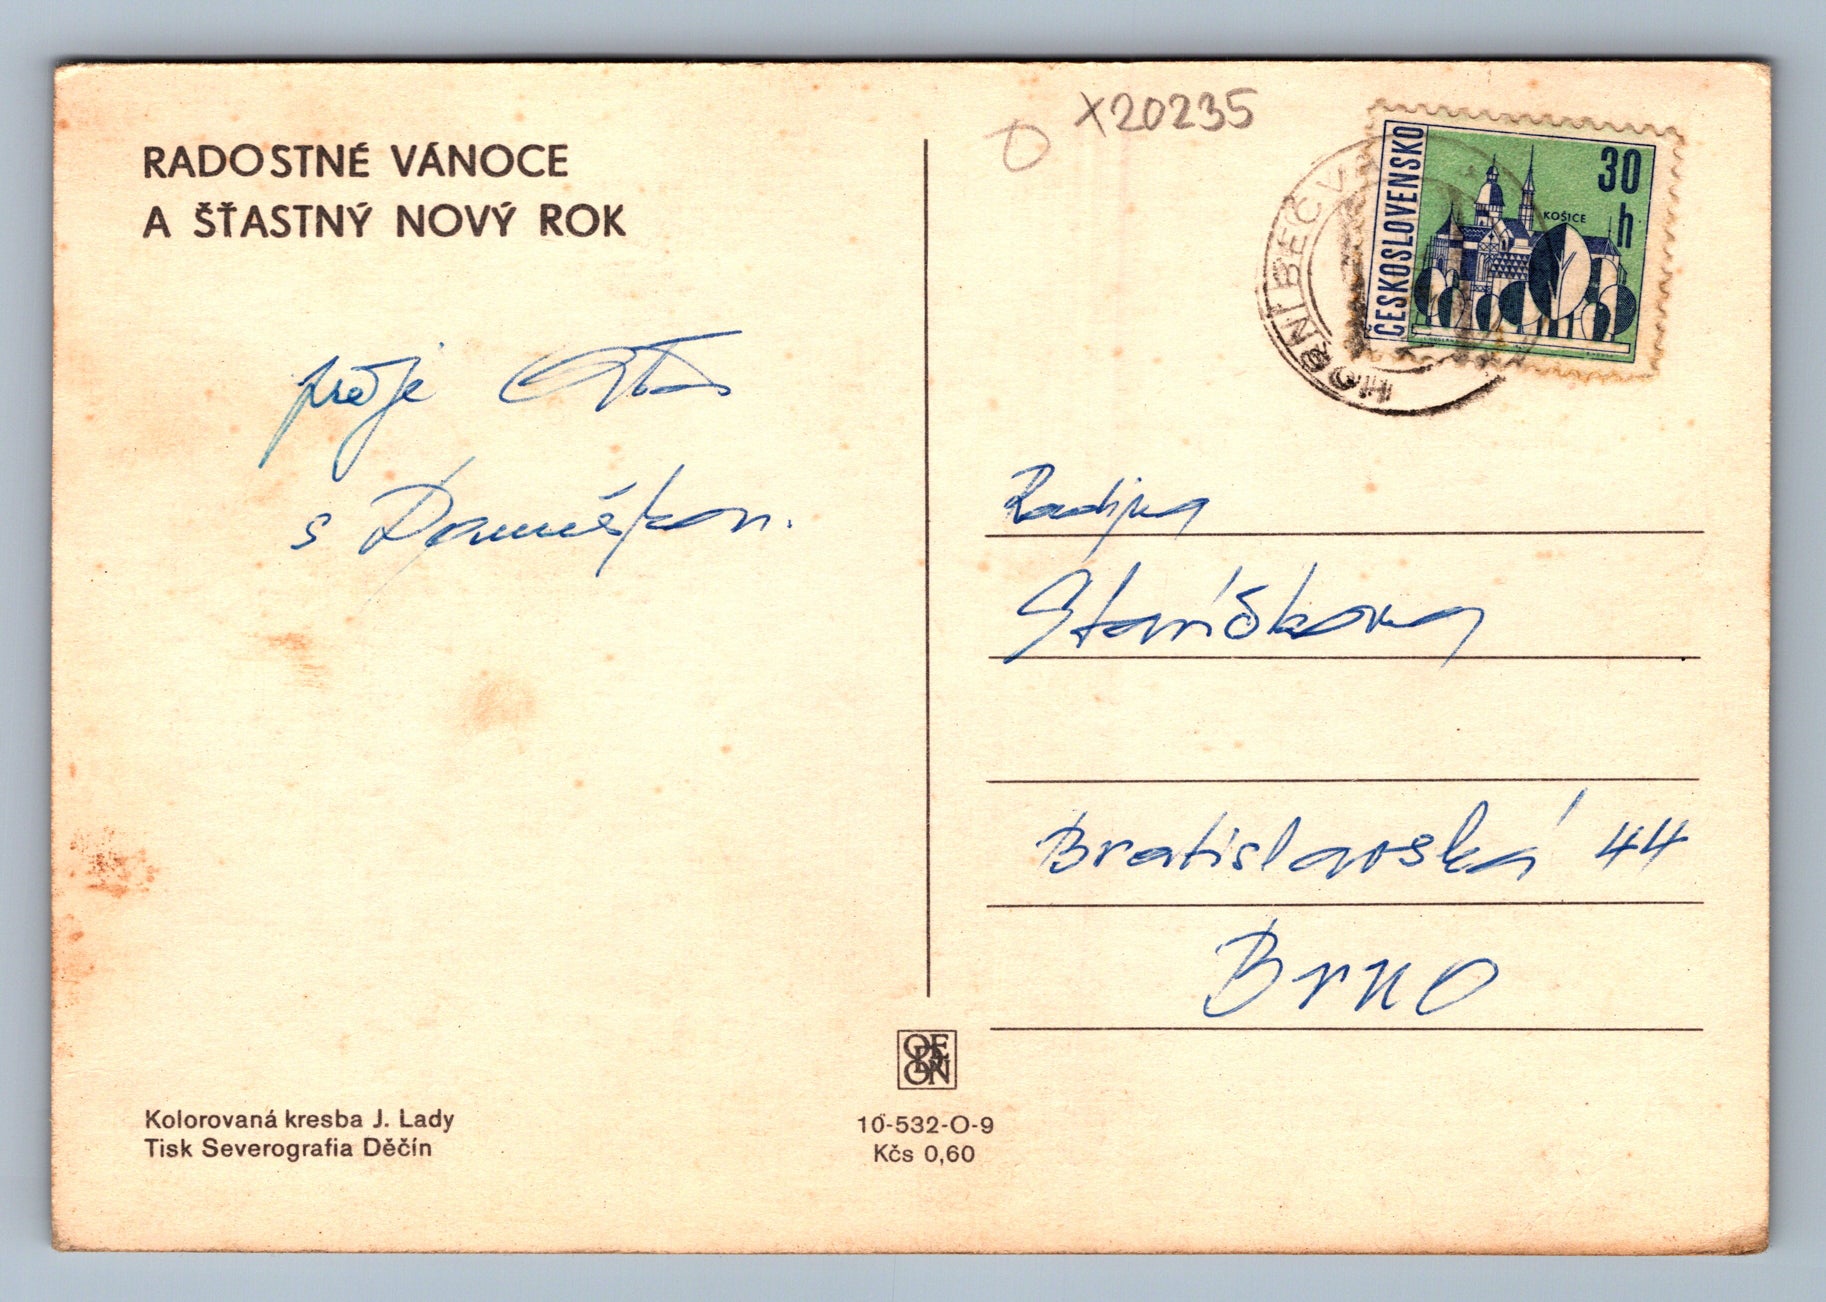 RADOSTNÉ VÁNOCE
A ŠŤASTNÝ NOVÝ ROK
X20235
ČESKOSLOVENSKO
30
h
KOŠICE
HORNÍ BEČVA
přeje
s
Staříčkova
Bratislavská 44
Brno
ODEON
Kolorovaná kresba J. Lady
Tisk Severografia Děčín
10-532-O-9
Kčs 0,60